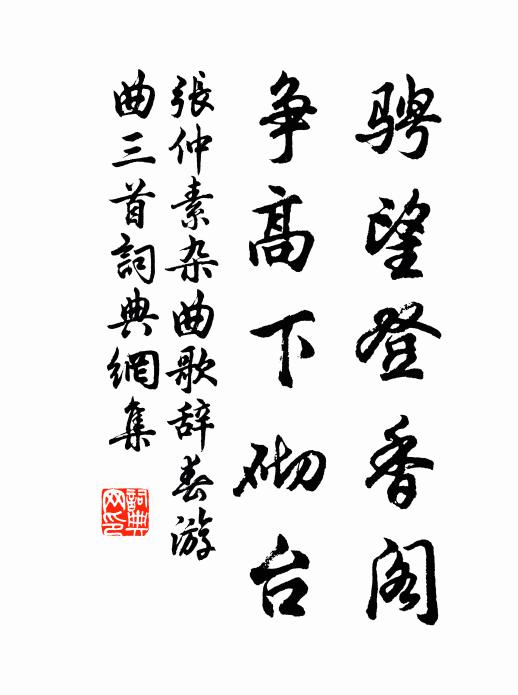 骋望登香阁
争高下砌台
張仲素杂曲歌辞春游
曲三首詞典網集
詞典網印